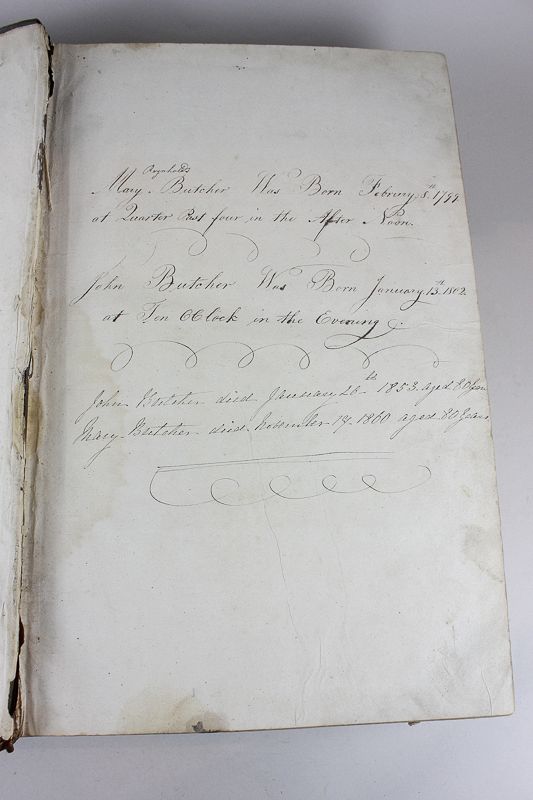 Reynolds
Mary Butcher Was Born Februry 8th 1799
at Quarter Past four in the After Noon.
John Butcher Was Born January 13th 1802.
at Ten OClock in the Evening
John Butcher died January 26th 1853 aged 80 years
Mary Butcher died November 1860 aged 80 years